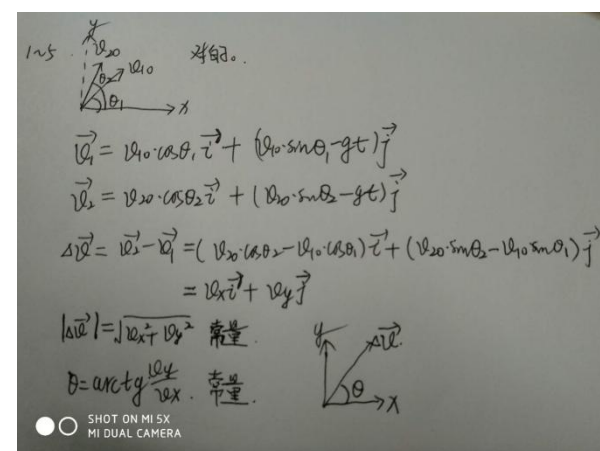 1~5 y 对的。
v₂₀ v₁₀
θ₂ θ₁ x
v⃗₁ = v₁₀·cosθ₁ i⃗ + (v₁₀·sinθ₁ - gt) j⃗
v⃗₂ = v₂₀·cosθ₂ i⃗ + (v₂₀·sinθ₂ - gt) j⃗
Δv⃗ = v⃗₂ - v⃗₁ = (v₂₀·cosθ₂ - v₁₀·cosθ₁) i⃗ + (v₂₀·sinθ₂ - v₁₀ sinθ₁) j⃗
= vₓ i⃗ + v_y j⃗
|Δv⃗| = √(vₓ² + v_y²) 常量.
θ = arctg v_y/vₓ. 常量.
y Δv⃗.
θ x
SHOT ON MI 5X
MI DUAL CAMERA